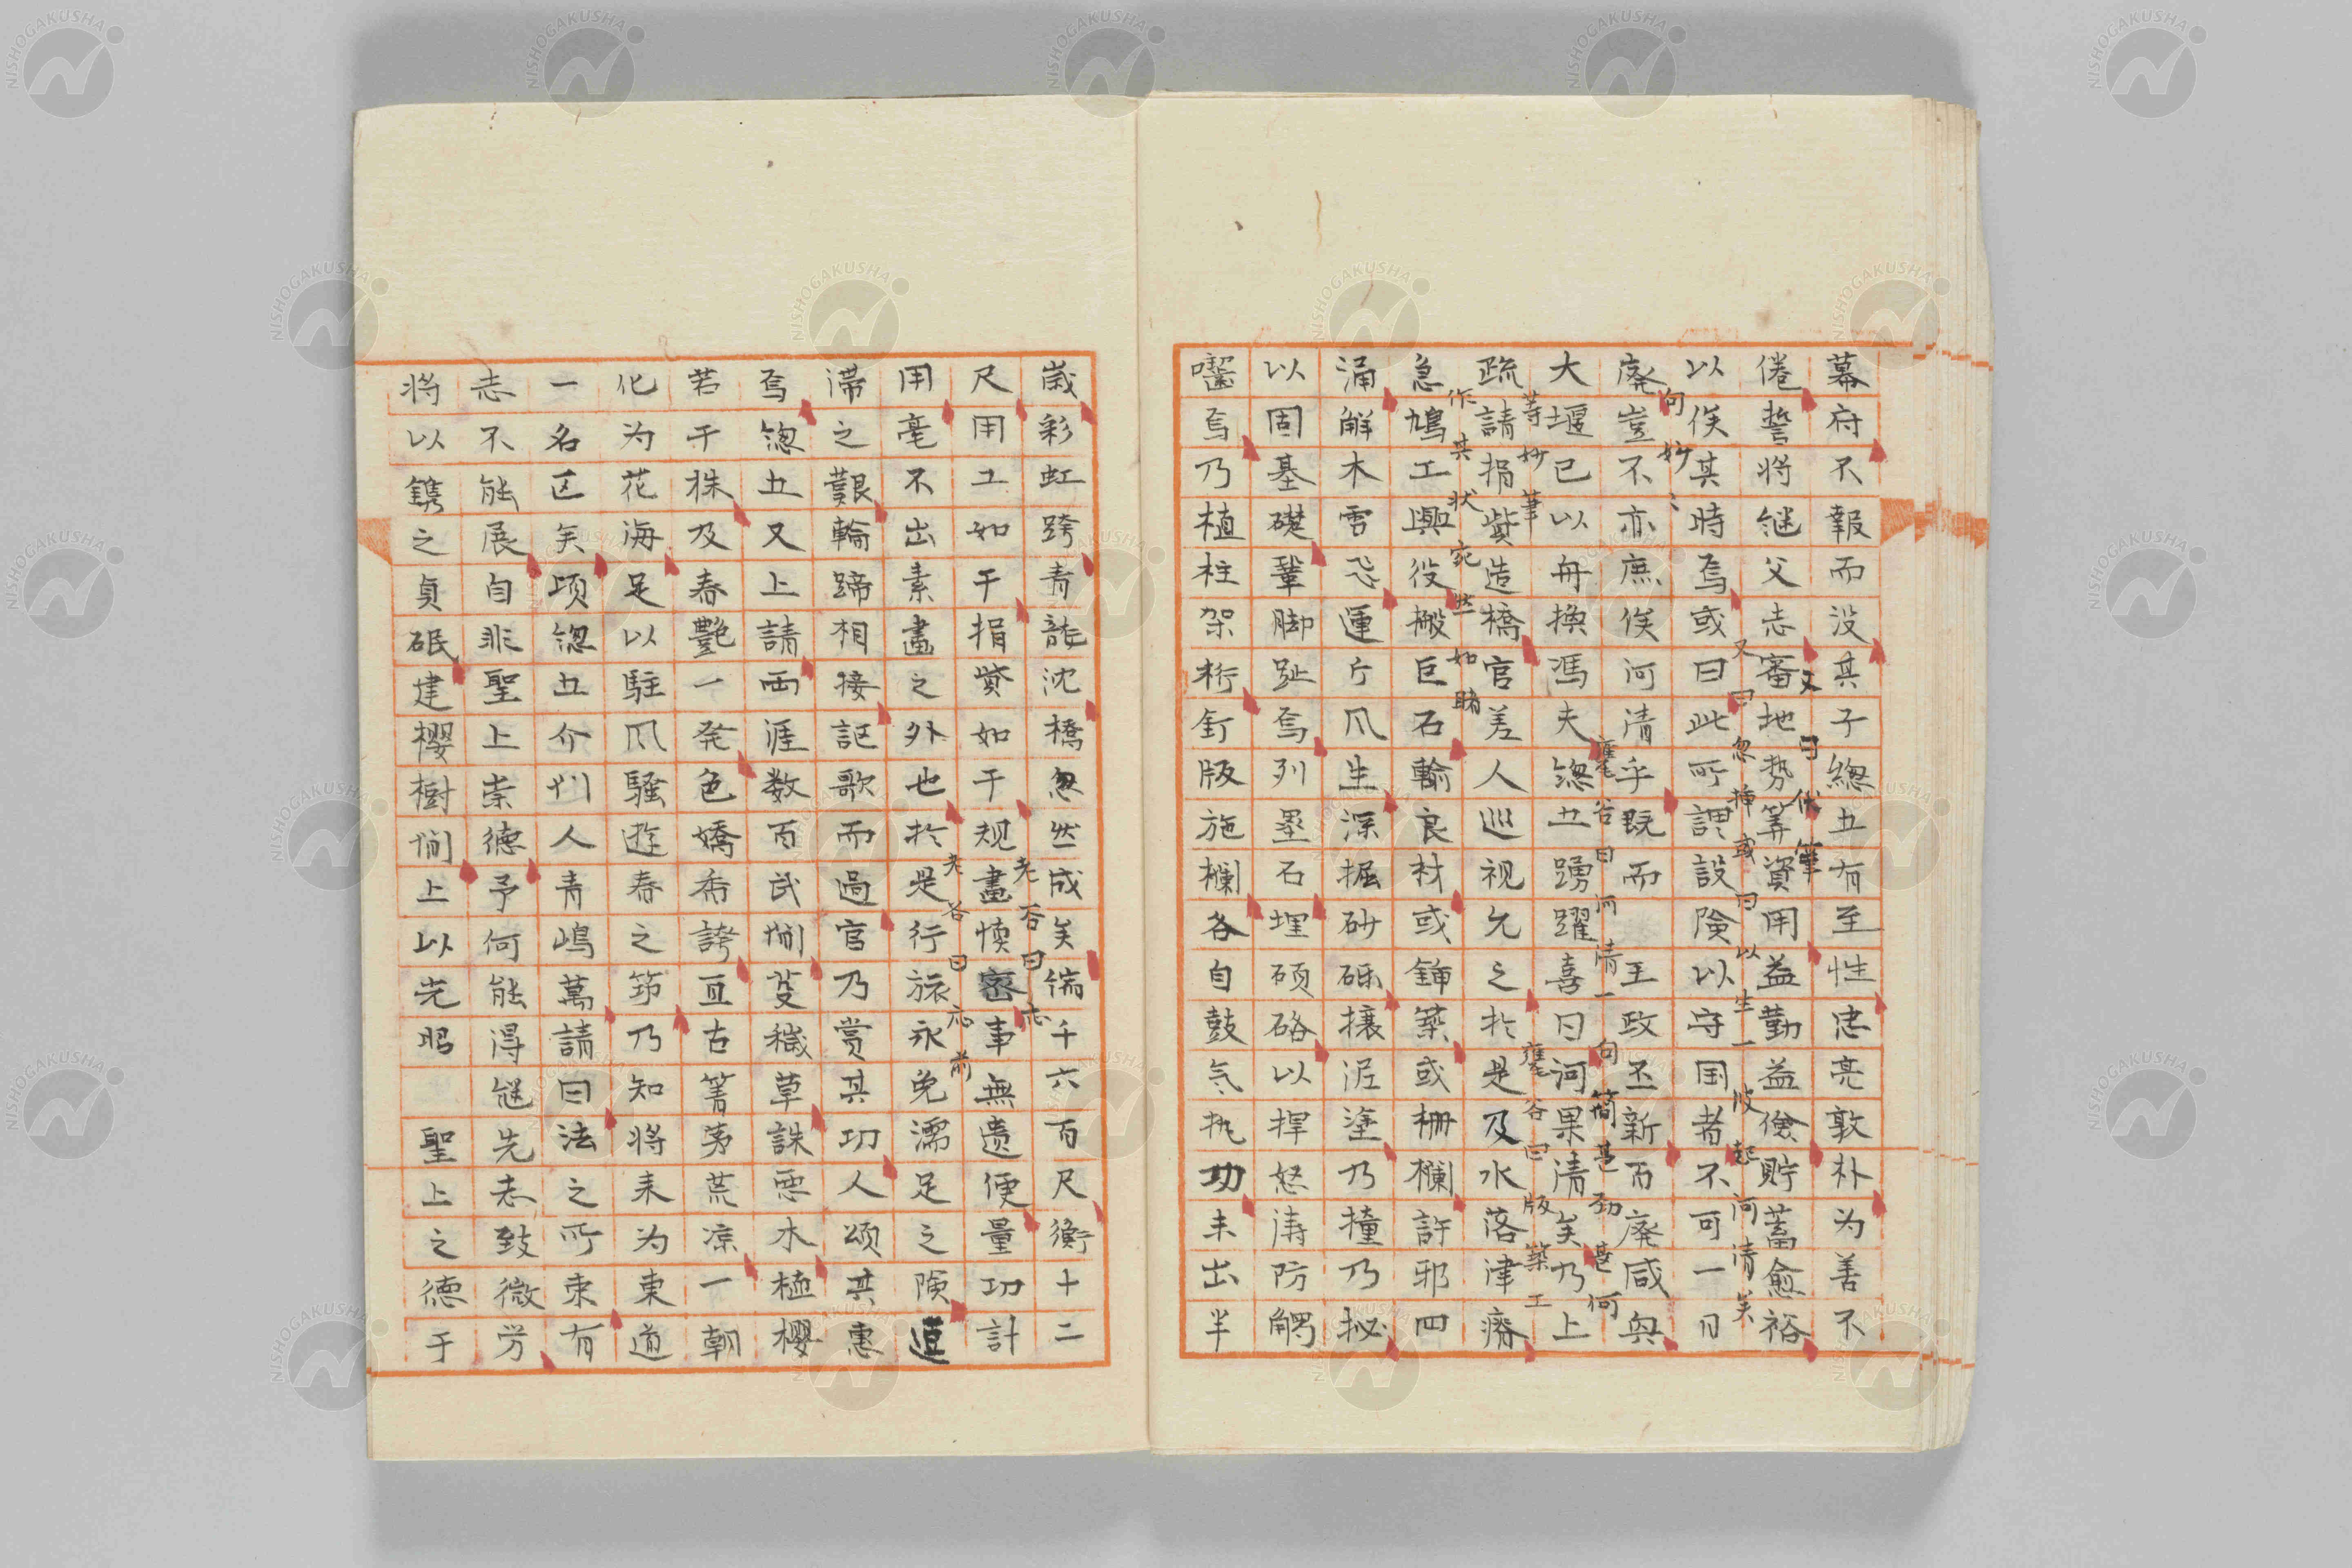 幕府不報而没其子緫五有至性忠亮敦朴为善不
又曰伏筆
倦誓将継父志審地勢筭資用益勤益儉貯蓄愈裕
又曰忽挿或曰以生一波起河清矣
以俟其時焉或曰此所謂設険以守国者不可一日
句妙〻
廃豈不亦庶俟河清乎既而 王政丕新百廃咸興
甕谷曰河清一句簡甚勁甚何
大堰已以舟換馮夫緫五踴躍喜曰河果清矣乃上
等妙筆 甕谷曰版築工
疏請捐貲造橋官差人巡視允之於是及水落津瘠
作其状宛然如睹
急鳩工興役搬巨石輸良材或鍤築或柵欄許邪四
涌解木雪忍運斤風生深掘研礫攘泥塗乃撞乃
以固基礎鞏脚趾焉列壘石埋碩硌以捍怒涛防觸
囓焉乃植柱架桁釘版施欄各自鼓気執功未出半
嵗彩虹跨青龍沈橋忽然成矣徧千六百尺衡十二
老谷曰
尺用工如干捐貲如干規畫愼密事無遺便量功計
老谷曰応前
用毫不出素畫之外也於是行旅永免濡足之険逗
滞之艱輪蹄相接謳歌而過官乃賞其功人頌其恵
焉緫五又上請両涯数百武間芟穢草誅悪木植櫻
若干株及春艶一発色嬌香誇亘古箐茅荒凉一朝
化为花海足以駐風騷遊春之筇乃知将来为東道
一名区矣頃緫五介州人青嶋萬請曰法之所束有
志不能展自非聖上崇徳予何能得継先志致微労
将以鐫之貞砥建櫻樹間上以光昭 聖上之徳于